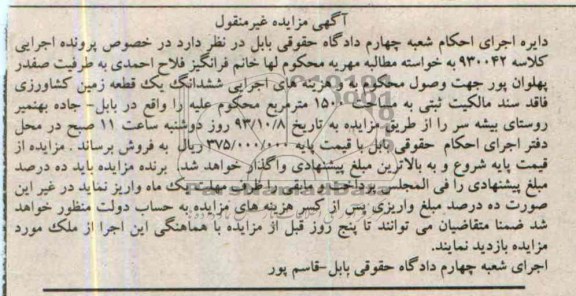 آگهی مزایده غیرمنقول
دایره اجرای احکام شعبه چهارم دادگاه حقوقی بابل در نظر دارد در خصوص پرونده اجرایی
کلاسه ۹۳۰۰۴۲ به خواسته مطالبه مهریه محکوم لها خانم فرانگیز فلاح احمدی به طرفیت صفدر
پهلوان پور جهت وصول محکوم به و هزینه های اجرایی ششدانگ یک قطعه زمین کشاورزی
فاقد سند مالکیت ثبتی به مساحت ۱۵۰۰ مترمربع محکوم علیه را واقع در بابل- جاده بهنمیر
روستای بیشه سر را از طریق مزایده به تاریخ ۹۳/۱۰/۸ روز دوشنبه ساعت ۱۱ صبح در محل
دفتر اجرای احکام حقوقی بابل با قیمت پایه ۳۷۵/۰۰۰/۰۰۰ ریال به فروش برساند . مزایده از
قیمت پایه شروع و به بالاترین مبلغ پیشنهادی واگذار خواهد شد. برنده مزایده باید ده درصد
مبلغ پیشنهادی را فی المجلس پرداخت و مابقی را ظرف مهلت یک ماه واریز نماید در غیر این
صورت ده درصد مبلغ واریزی پس از کسر هزینه های مزایده به حساب دولت منظور خواهد
شد ضمنا متقاضیان می توانند تا پنج روز قبل از مزایده با هماهنگی این اجرا از ملک مورد
مزایده بازدید نمایند.
اجرای شعبه چهارم دادگاه حقوقی بابل-قاسم پور